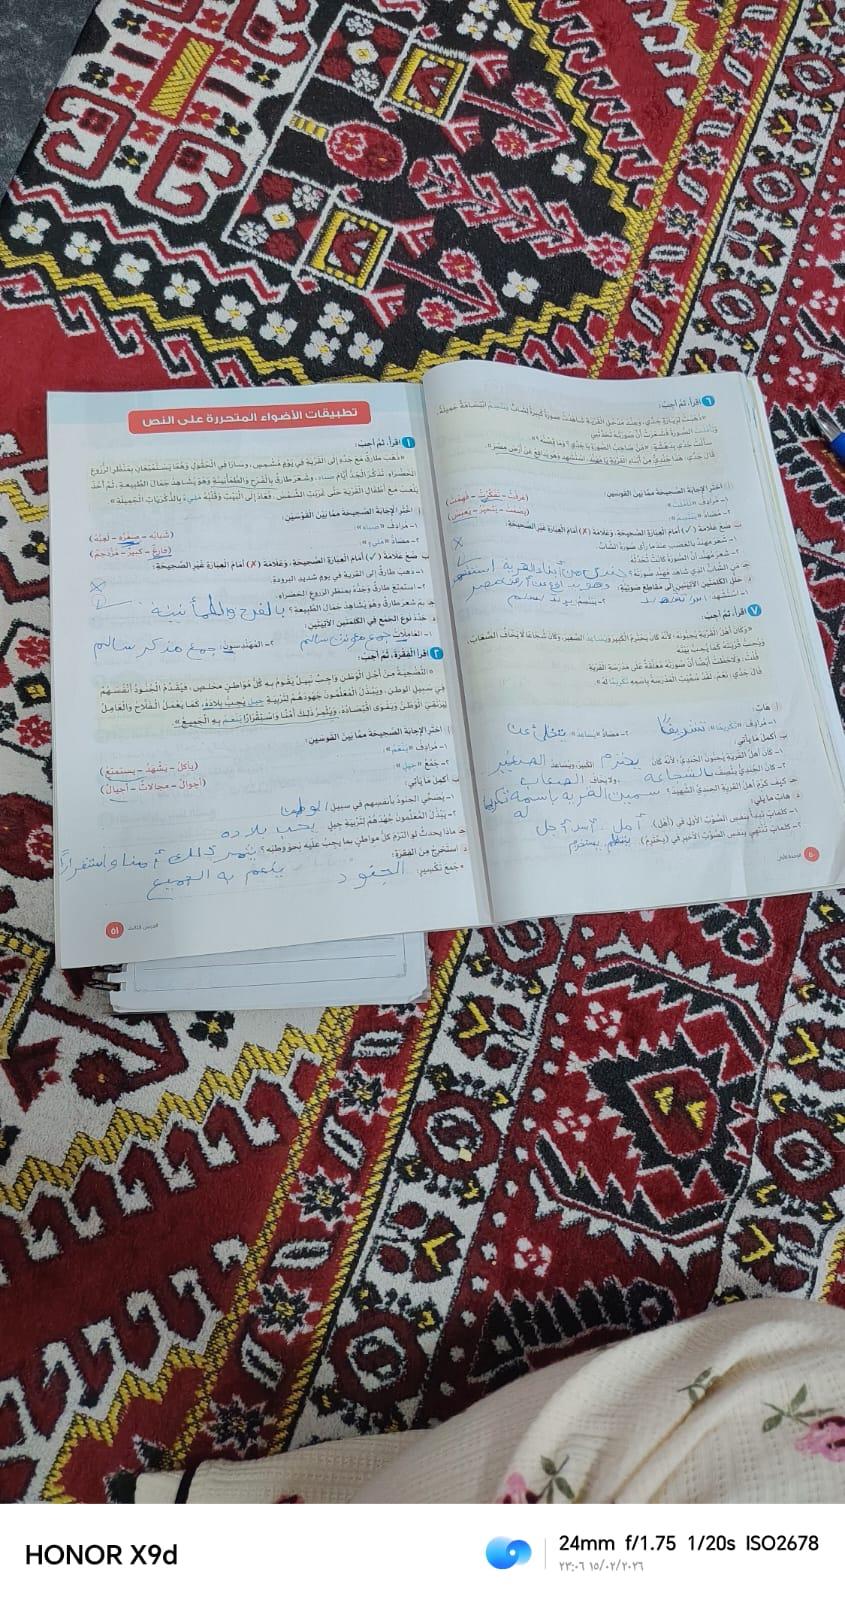 ٦ اقرأ، ثم أجب:
قال جدي: هذا جندي من أبناء القرية يا مهند، استشهد وهو يدافع عن أرض مصر».
أ اختر الإجابة الصحيحة مما بين القوسين:
١- مرادف «تأملت»: (عرفت – تفكرت – فهمت)
٢- مضاد «يبتسم»:
ب ضع علامة (✓) أمام العبارة الصحيحة، وعلامة (✗) أمام العبارة غير الصحيحة:
١- شعر مهند بالغضب عندما رأى صورة الشاب.
٢- شعر مهند أن الصورة كانت تحدثه
٧ اقرأ، ثم أجب:
«وكان أهل القرية يحبونه؛ لأنه كان يحترم الكبير ويساعد الصغير، وكان شجاعا لا يخاف الصعاب،
ويحب قريته كما يحب بيته
قلت: ولاحظت أيضا أن صورته معلقة على مدرسة القرية
قال جدي: نعم، لقد سميت المدرسة باسمه تكريما له».
أ هات:
١- مرادف «تكريما»: تشريفًا ٢- مضاد «يساعد»: يتخلى عن
ب أكمل ما يأتي:
١- كان أهل القرية يحبون الجندي؛ لأنه كان يحترم الكبير، ويساعد الصغير
٢- كان الجندي يتصف بالشجاعة ولا يخاف الصعاب
جـ كيف كرم أهل القرية الجندي الشهيد؟
د هات ما يلي:
١- كلمات تبدأ بنفس الصوت الأول في (أهل). أمل – أسد أجل
٢- كلمات تنتهي بنفس الصوت الأخير في (يحترم)
٥٠
تطبيقات الأضواء المتحررة على النص
١ اقرأ، ثم أجب:
«ذهب طارق مع جده إلى القرية في يوم مشمس، وسارا في الحقول وهما يستمتعان بمنظر الزروع
الخضراء، تذكر الجد أيام صباه، وشعر طارق بالفرح والطمأنينة وهو يشاهد جمال الطبيعة، ثم أخذ
يلعب مع أطفال القرية حتى غربت الشمس، فعاد إلى البيت وقلبه مليء بالذكريات الجميلة»
أ اختر الإجابة الصحيحة مما بين القوسين:
١- مرادف «صباه»: (شبابه – صغره – لعبه)
٢- مضاد «مليء»: (فارغ – كبير – مزدحم)
ب ضع علامة (✓) أمام العبارة الصحيحة، وعلامة (✗) أمام العبارة غير الصحيحة:
١- ذهب طارق إلى القرية في يوم شديد البرودة.
٢- استمتع طارق وجده بمنظر الزروع الخضراء.
جـ بم شعر طارق وهو يشاهد جمال الطبيعة؟ بالفرح والطمأنينة
د حدد نوع الجمع في الكلمتين الآتيتين:
١- العاملات جمع مؤنث سالم ٢- المهندسون: جمع مذكر سالم
٢ اقرأ الفقرة، ثم أجب:
«التضحية من أجل الوطن واجب نبيل يقوم به كل مواطن مخلص، فيقدم الجنود أنفسهم
في سبيل الوطن، ويبذل المعلمون جهودهم لتربية جيل يحب بلاده، كما يعمل الفلاح والعامل
ليرتقي الوطن ويقوى اقتصاده، ويثمر ذلك أمنا واستقرارا ينعم به الجميع».
أ اختر الإجابة الصحيحة مما بين القوسين:
١- مرادف «ينعم»: (يأكل – يشهد – يستمتع)
٢- جمع «جيل»: (أجوال – مجالات – أجيال)
ب أكمل ما يأتي:
١- يضحي الجنود بأنفسهم في سبيل الوطن
٢- يبذل المعلمون جهدهم لتربية جيل يحب بلاده
جـ ماذا يحدث لو التزم كل مواطن بما يجب عليه نحو وطنه؟ يثمر ذلك أمنا واستقرارًا
ينعم به الجميع
د استخرج من الفقرة:
• جمع تكسير: الجنود
الدرس الثالث ٥١
HONOR X9d
24mm f/1.75 1/20s ISO2678
٢٣:٠٦ ١٥/٠٢/٢٠٢٦